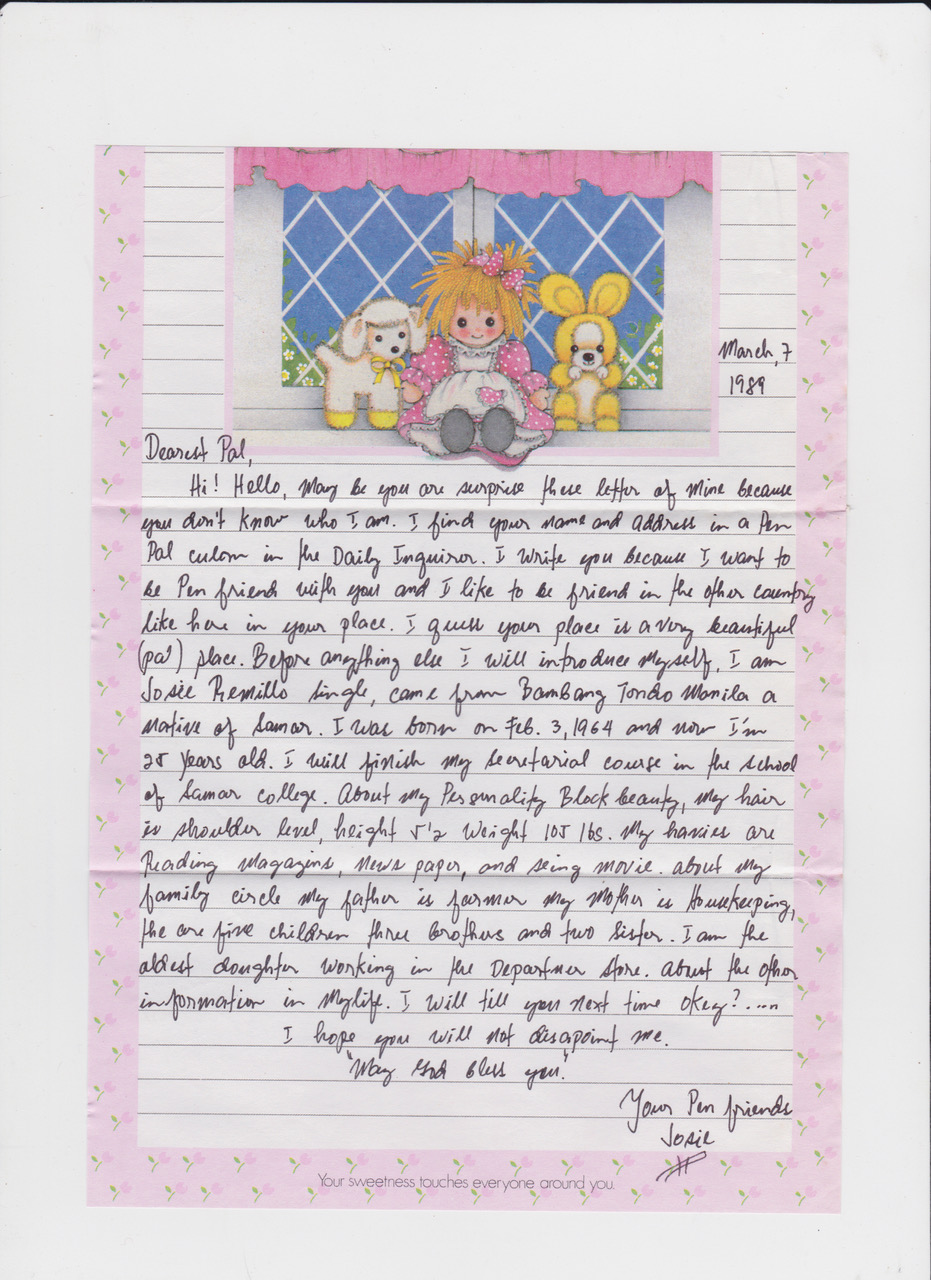 March, 7
1989
Dearest Pal,
Hi! Hello, May be you are surprise these letter of mine because
you don't know who I am. I find your name and address in a Pen
Pal culom in the Daily Inquiror. I write you because I want to
be Pen friend with you and I like to be friend in the other country
like here in your place. I guess your place is a very beautiful
(pa') place. Before anything else I will introduce myself, I am
Josie Remillo single, came from Bambang Tondo Manila a
native of Samar. I was born on Feb. 3, 1964 and now I'm
25 years old. I will finish my secretarial course in the school
of Samar college. About my Personality Block beauty, my hair
is shoulder level, height 5'2 weight 105 lbs. My havies are
Reading magazins, news paper, and seing movie. about my
family circle my father is farmer my Mother is Housekeeping,
the are five children three brothers and two sister. I am the
oldest doughter working in the Departmer store. About the other
information in mylife. I will till you next time okey?....
I hope you will not disapoint me.
"May God bless you."
Your Pen friends
Josie
Your sweetness touches everyone around you.